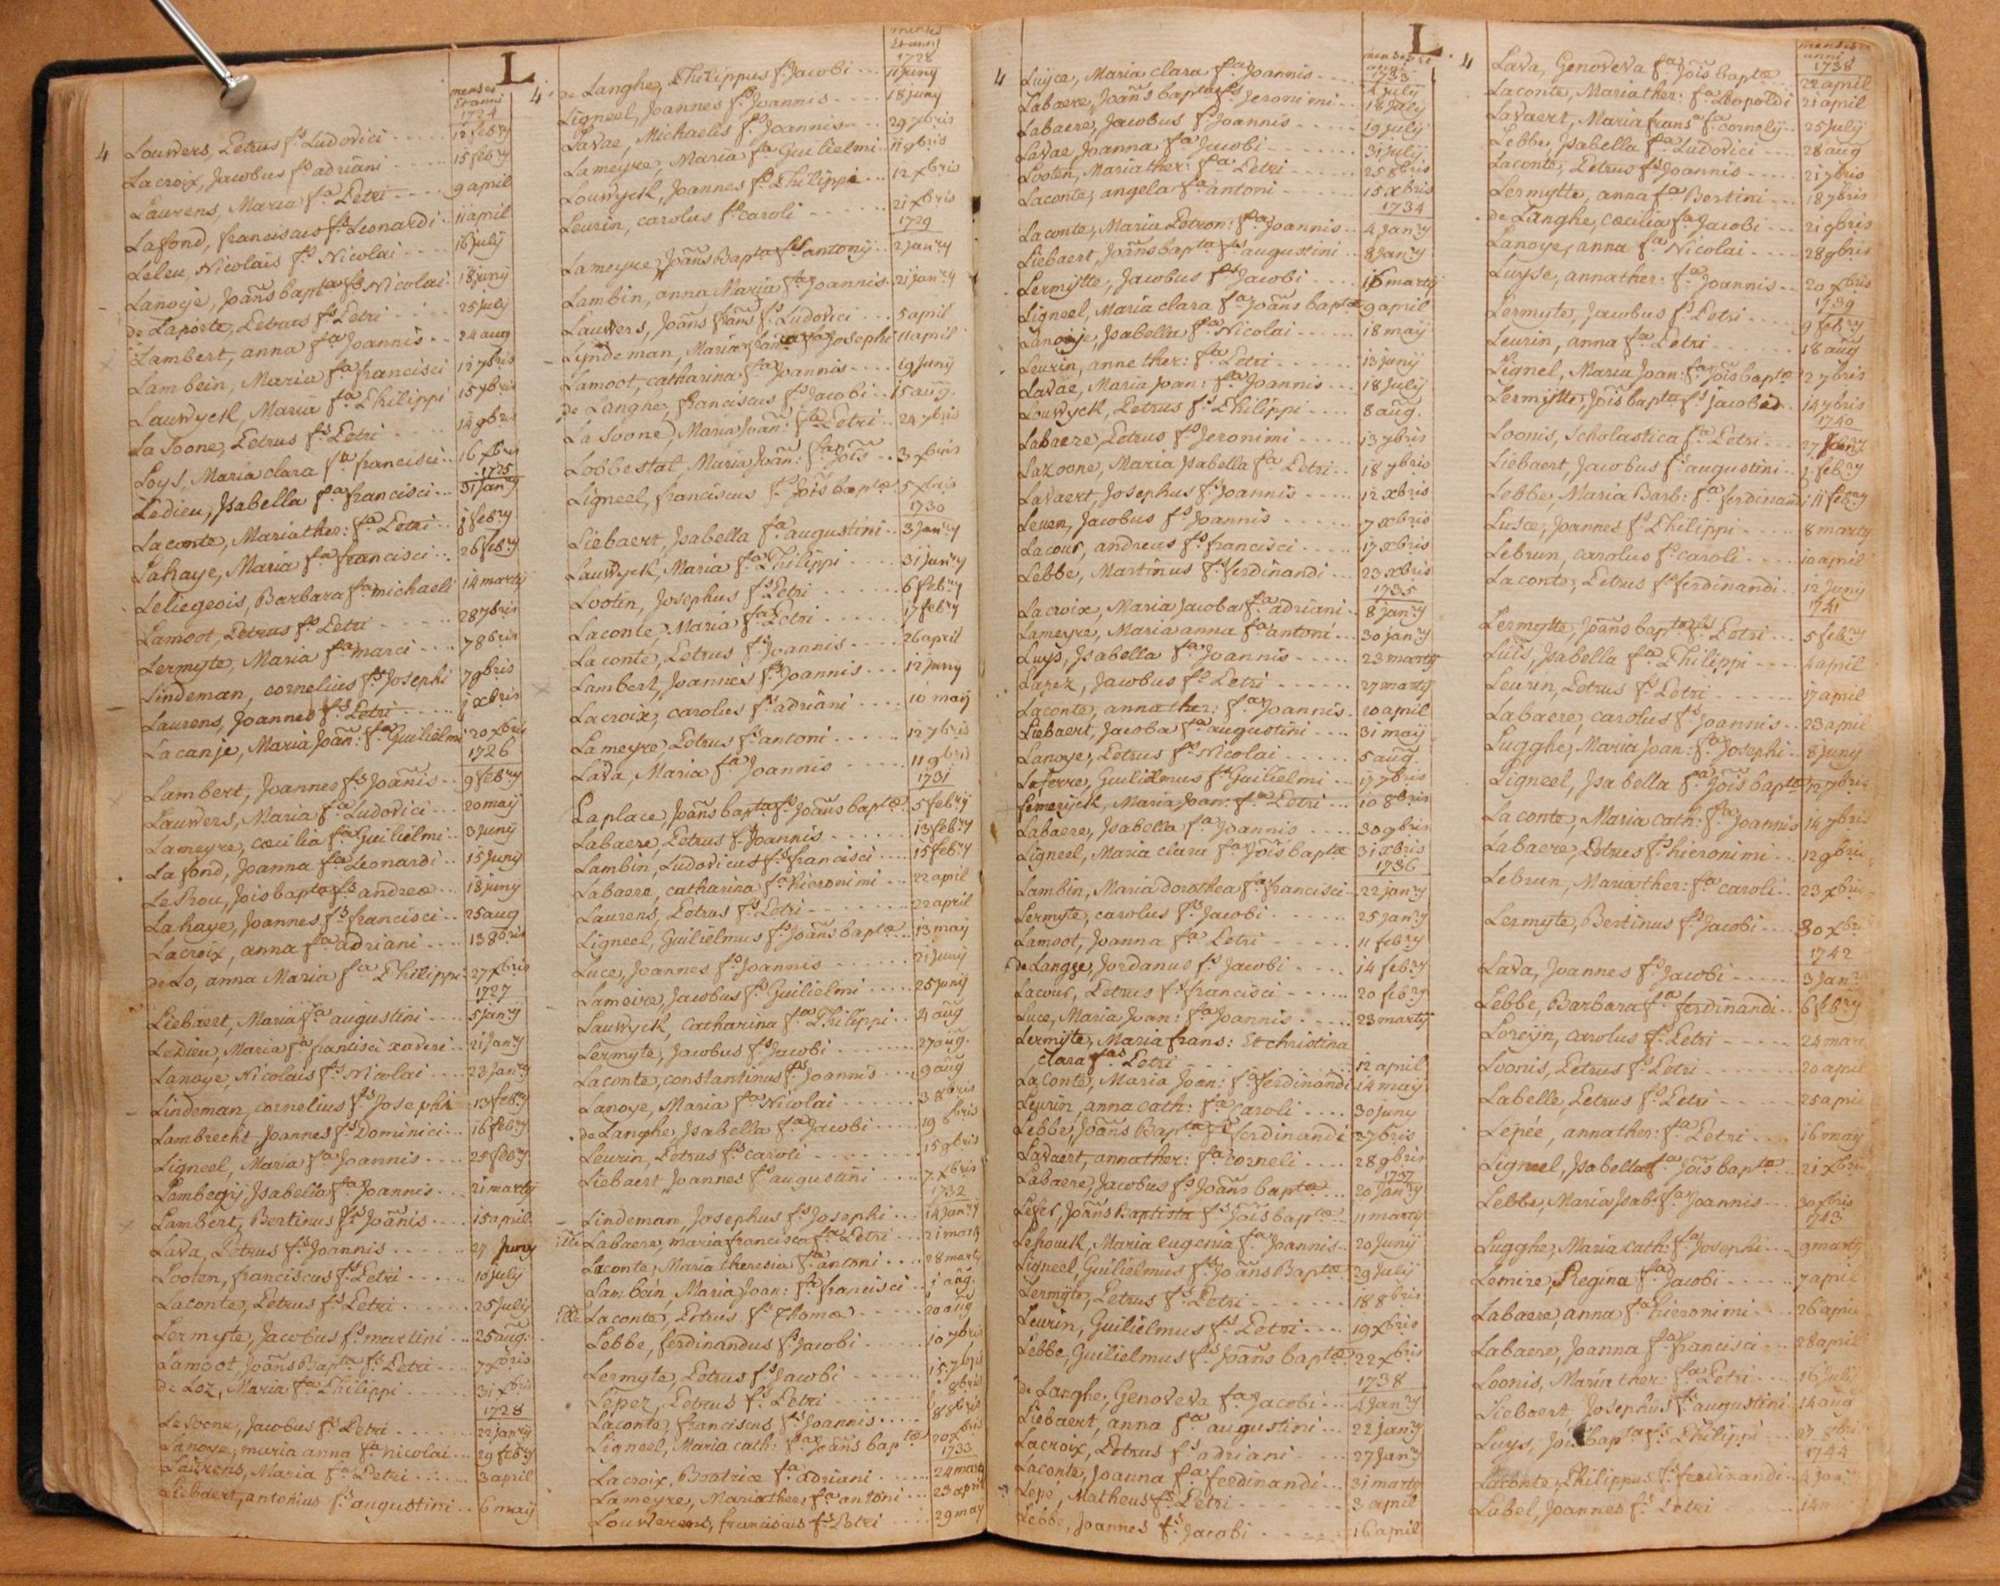 L
menses
et anni
1724
4 Louwers, Petrus fs Ludovici 12 febry
Lacroix, Jacobus fs adriani 15 febry
Laurens, Maria fa Petri 9 april
Lafond, franciscus fs Leonardi 11 april
Leleu, Nicolais fs Nicolai 16 july
Lanoije, Joańs bapta fs Nicolai 18 junij
de Laporte, Petrus fs Petri 25 july
Lambert, anna fa Joannis 24 aug
Lambein, Maria fa francisci 12 7bris
Lauwyck, Maria fa Philippi 15 7bris
La Soone, Petrus fs Petri 14 9bris
Loys, Maria clara fa francisci 16 xbris
1725
Ledieu, Isabella fa francisci 31 janry
Laconte, Mariather: fa Petri 1 febry
Lahaye, Maria fa francisci 26 febry
Leliegeois, Barbara fa michaeli 14 martij
Lamoot, Petrus fs Petri 28 7bris
Lermyte, Maria fa marci 7 8bris
Lindeman, cornelius fs Josephi 7 9bris
Laurens, Joannes fs Petri 1 xbris
Lacanje, Maria Joań: fa Guilielmi 20 xbris
1726
Lambert, Joannes fs Joańis 9 febry
Lauwers, Maria fa Ludovici 20 maij
Lameyre, cæcilia fa Guilielmi 3 junij
Lafond, Joanna fa Leonardi 15 junij
LeProu, Jois bapta fs andreæ 18 juny
Lahaye, Joannes fs francisci 25 aug
Lacroix, anna fa adriani 13 8bris
de Lo, anna Maria fa Philippi 27 xbris
1727
Liebaert, Maria fa augustini 5 janry
Ledieu, Maria fa francisci xaveri 21 janry
Lanoye Nicolais fs Nicolai 23 janry
Lindeman, cornelius fs Josephi 13 febry
Lambrecht Joannes fs Dominici 16 febry
Ligneel, Maria fa Joannis 25 febry
Lambegij, Isabella fa Joannis 21 martij
Lambert, Bertinus fs Joańis 15 april
Lava, Petrus fs Joannis 27 juny
Looten, franciscus fs Petri 10 july
Laconte, Petrus fs Petri 25 july
Lermyte, Jacobus fs martini 25 aug.
Lamoot, Joańs Bapta fs Petri 7 xbris
de Loz, Maria fa Philippi 31 xbris
1728
Le Soone, Jacobus fs Petri 22 janry
Lanoye, maria anna fa Nicolai 29 febry
Laurens, Maria fa Petri 3 april
Liebaert, antonius fs augustini 6 maij
menses
et anni
1728
4 de Langhe, Philippus fs Jacobi 11 juny
Ligneel, Joannes fs Joannis 18 juny
Lavae, Michaelis fs Joannis 29 7bris
Lameyre, Maria fa Guilielmi 11 9bris
Louwyck, Joannes fs Philippi 12 xbris
Leurin, carolus fs caroli 21 xbris
1729
Lameyre, Joańs Bapta fs antonij 2 janry
Lambin, anna Maria fa Joannis 21 janry
Lauwers, Joańs frańs fs Ludovici 5 april
Lyndeman, Maria fa Josephi 11 april
Lamoot, catharina fa Joannis 19 junij
de Langhe, franciscus fs Jacobi 15 aug.
La Soone, Maria Joań: fa Petri 24 7bris
Lobbestal, Maria Joań: fa Jois 3 xbris
Ligneel, franciscus fs Jois baptæ 5 xbris
1730
Liebaert, Isabella fa augustini 3 janry
Lauwyck, Maria fa Philippi 31 janry
Lootin, Josephus fs Petri 6 febry
Laconte, Maria fa Petri 17 febry
Laconte, Petrus fs Joannis 26 april
Lambert, Joannes fs Joannis 12 juny
Lacroix, carolus fs adriani 10 maij
Lameyre Petrus fs antoni 12 7bris
Lava, Maria fa Joannis 11 9bris
1731
Laplace, Joańs bapta fs Joańs baptæ 5 febry
Labaere, Petrus fs Joannis 13 febry
Lambin, Ludovicus fs francisci 15 febry
Labaere, catharina fa hieronimi 22 april
Laurens, Petrus fs Petri 22 april
Ligneel, Guilielmus fs Joańs baptæ 13 maij
Luce, Joannes fs Joannis 21 juny
Lameire, Jacobus fs Guilielmi 25 junij
Lauwyck, Catharina fa Philippi 4 aug
Lermyte, Jacobus fs Jacobi 27 aug.
Laconte, constantinus fs Joannis 9 aug
Lanoye, Maria fa Nicolai 3 8bris
de Langhe Isabella fa Jacobi 19 8bris
Leurin, Petrus fs caroli 15 9bris
Liebaert Joannes fs augustini 7 xbris
1732
Lindeman, Josephus fs Josephi 14 janry
Labaere, maria francisca fa Petri 21 martij
Laconte, Maria theresia fa antoni 28 martij
Lambein, Maria Joan: fa francisci 1 aug.
Laconte, Petrus fs Thomæ 20 aug
Lebbe, ferdinandus fs Jacobi 10 7bris
Lermyte, Petrus fs Jacobi 15 7bris
Lepez, Petrus fs Petri 8bris
Laconte, franciscus fs Joannis 8 8bris
Ligneel, Maria cath: fa Joańs baptæ 20 xbris
1733
Lacroix, Beatrice fa adriani 24 martij
Lameyre, Mariather fa antoni 23 april
Louwerens, franciscus fs Petri 29 may
L
menses et
anni
1733
4 Luyce, Maria clara fa Joannis 2 july
Labaere, Joańs bapta fs Jeronimi 18 july
Labaere, Jacobus fs Joannis 19 july
Lavae Joanna fa Jacobi 31 july
Looten, Mariather: fa Petri 25 8bris
Laconte, angela fa antoni 15 xbris
1734
Laconte, Maria Petron: fa Joannis 4 janry
Liebaert, Joańs bapta fs augustini 8 janry
Lermytte, Jacobus fs Jacobi 16 martij
Ligneel, Maria clara fa Joańs baptæ 9 april
Lanoije, Isabella fa Nicolai 18 maij
Leurin, anne ther: fa Petri 13 junij
Lavae, Maria Joan: fa Joannis 18 july
Louwyck, Petrus fs Philippi 8 aug.
Labaere, Petrus fs Jeronimi 13 7bris
Lazoone, Maria Isabella fa Petri 18 7bris
Lavaert, Josephus fs Joannis 12 xbris
Leven, Jacobus fs Joannis 7 xbris
Lacour, andreus fs francisci 17 xbris
Lebbe, Martinus fs ferdinandi 23 xbris
1735
Lacroix, Maria Jacoba fa adriani 8 janry
Lameyre, Maria anna fa antoni 30 janry
Luys, Isabella fa Joannis 23 martij
Lapez, Jacobus fs Petri 27 martij
Laconte, annather: fa Joannis 20 april
Liebaert, Jacoba fa augustini 31 maij
Lanoye, Petrus fs Nicolai 5 aug.
Laferre, Guilielmus fs Guilielmi 17 7bris
Lemeryck, Maria Joan: fa Petri 10 8bris
Labaere, Isabella fa Joannis 30 9bris
Ligneel, Maria clara fa Jois baptæ 31 xbris
1736
Lambin, Maria dorothea fa francisci 22 janry
Lermyte, carolus fs Jacobi 25 janry
Lamoot, Joanna fa Petri 11 febry
de Langhe, Jordanus fs Jacobi 14 febry
Lacour, Petrus fs francisci 20 febry
Luce, Maria Joan: fa Joannis 23 martij
Lermyte, Maria frans: Et christina
clara fas Petri 12 april
La Conte, Maria Joan: fa ferdinandi 14 maij
Leurin, anna cath: fa caroli 30 juny
Lebbe, Joańs Bapta fs ferdinandi 3 7bris
Lavaert, annather: fa corneli 28 9bris
1737
Labaere, Jacobus fs Joańs baptæ 20 janry
Lefer, Joańs Baptista fs Jois baptæ 11 martij
Lehouck, Maria eugenia fa Joannis 20 junij
Ligneel, Guilielmus fs Joańs Baptæ 29 july
Lermijte, Petrus fs Petri 18 8bris
Leurin, Guilielmus fs Petri 19 xbris
Lebbe, Guilielmus fs Joańs baptæ 22 xbris
1738
de Langhe, Genoveva fa Jacobi 4 janry
Liebaert, anna fa augustini 22 janry
Lacroix, Petrus fs adriani 27 janry
Laconte, Joanna fa ferdinandi 31 martij
Lepé, Matheus fs Petri 3 april
Lebbe, Joannes fs Jacobi 16 april
menses
anni
1738
4 Lava, Genoveva fa Jois baptæ 22 april
Laconte, Mariather: fa Leopoldi 21 april
Lavaert, Maria frans fa Cornely 25 july
Lebbe, Isabella fa Ludovici 28 aug
Laconte, Petrus fs Joannis 21 7bris
Lermytte, anna fa Bertini 18 7bris
de Langhe, cæcilia fa Jacobi 21 9bris
Lanoye, anna fa Nicolai 28 9bris
Luyse, annather: fa Joannis 20 xbris
1739
Lermyte, Jacobus fs Petri 9 febry
Leurin, anna fa Petri 18 aug
Lignel, Maria Joan: fa Jois baptæ 2 7bris
Lermytte, Jois bapta fs Jacobi 14 7bris
1740
Loonis, Scholastica fa Petri 27 janry
Liebaert, Jacobus fs augustini 1 febry
Lebbe, Maria Barb: fa ferdinandi 11 febry
Lusce, Joannes fs Philippi 8 martij
Lebrun, carolus fs caroli 10 april
Laconte, Petrus fs ferdinandi 12 juny
1741
Lermytte, Joańs bapta fs Petri 5 febry
Luis, Isabella fa Philippi 4 april
Leurin, Petrus fs Petri 17 april
Labaere, carolus fs Joannis 23 april
Lugghe, Maria Joan: fa Josephi 8 juny
Ligneel, Isabella fa Jois baptæ 12 7bris
Laconte, Maria Cath: fa Joannis 14 7bris
Labaere, Petrus fs hieronimi 12 9bris
Lebrun, Mariather: fa caroli 23 xbris
Lermyte, Bertinus fs Jacobi 30 xbris
1742
Lava, Joannes fs Jacobi 3 janry
Lebbe, Barbara fa ferdinandi 6 febry
Loreijn, carolus fs Petri 24 mart
Loonis, Petrus fs Petri 20 april
Labelle, Petrus fs Petri 25 april
Lepée, annather: fa Petri 16 maij
Ligneel, Isabella fa Jois baptæ 21 xbris
Lebbe, Maria Isab: fa Joannis 30 xbris
1743
Lugghe, Maria Cath: fa Josephi 9 martij
Lemire, Regina fa Jacobi 7 april
Labaere, anna fa hieronimi 26 april
Labaere, Joanna fa francisci 28 april
Loonis, Maria ther: fa Petri 16 july
Liebaert, Josephus fs augustini 14 aug
Luys, Jois bapta fs Philippi 27 8bris
1744
Laconte, Philippus fs ferdinandi 4 janry
Label, Joannes fs Petri 14